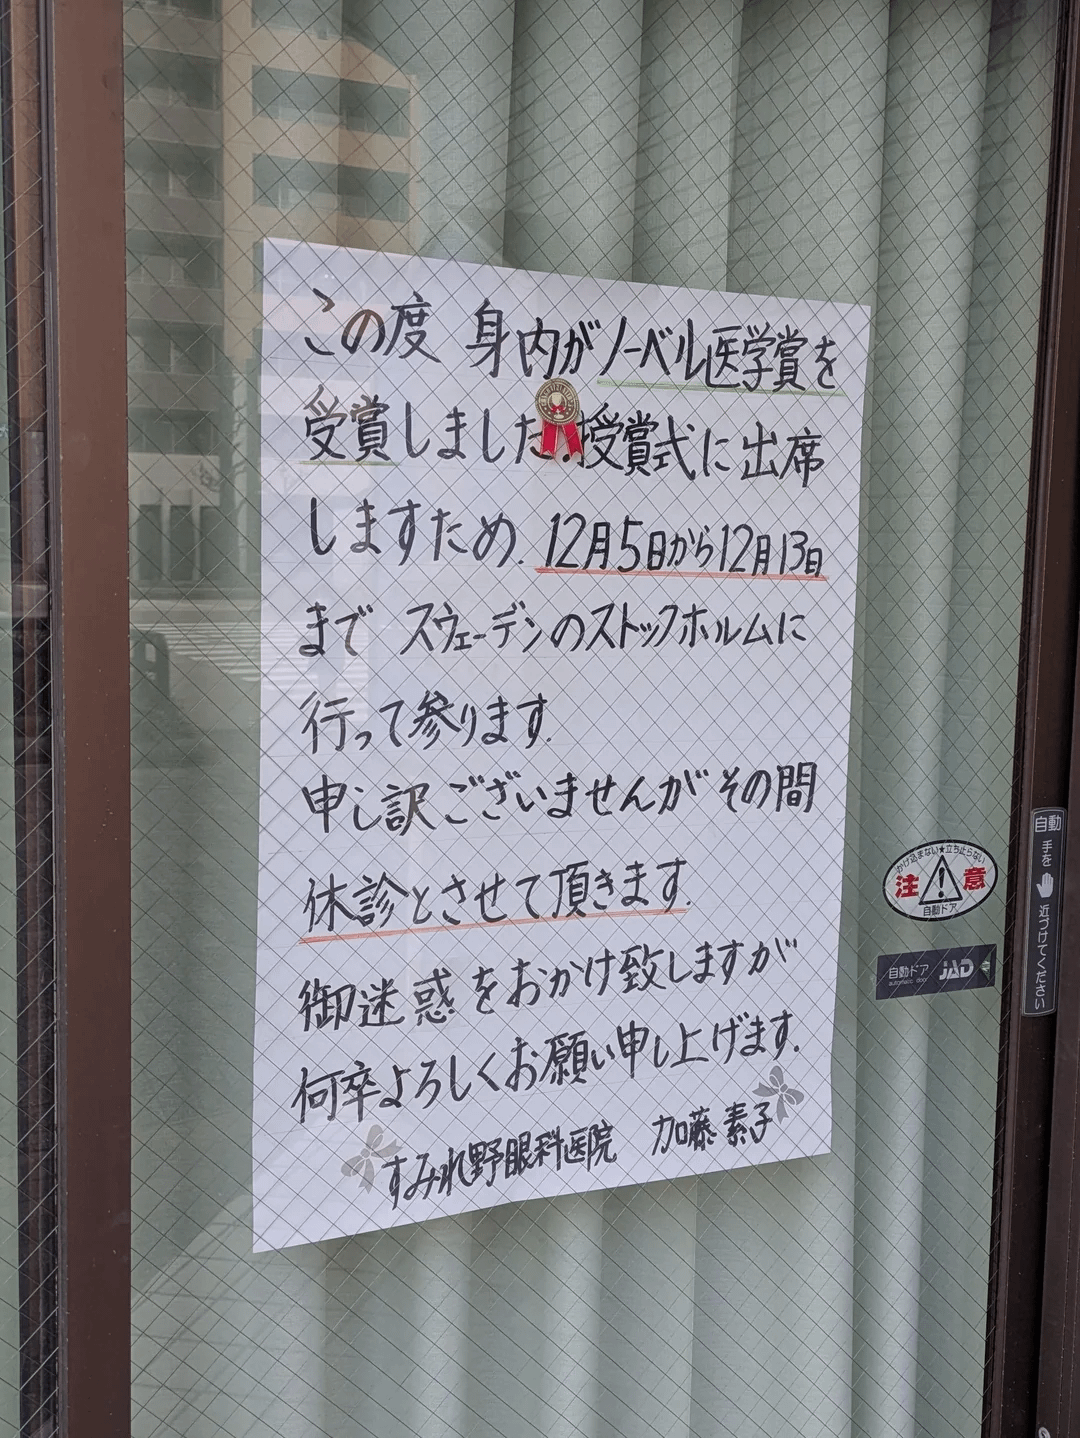 この度 身内がノーベル医学賞を
受賞しました.授賞式に出席
しますため.12月5日から12月13日
まで スウェーデンのストックホルムに
行って参ります.
申し訳ございませんがその間
休診とさせて頂きます.
御迷惑をおかけ致しますが
何卒よろしくお願い申し上げます.
すみれ野眼科医院 加藤素子
かけ込まない★立ち止らない
注意
自動ドア
自動ドア JAD
automatic door
自動
手を
近づけてください